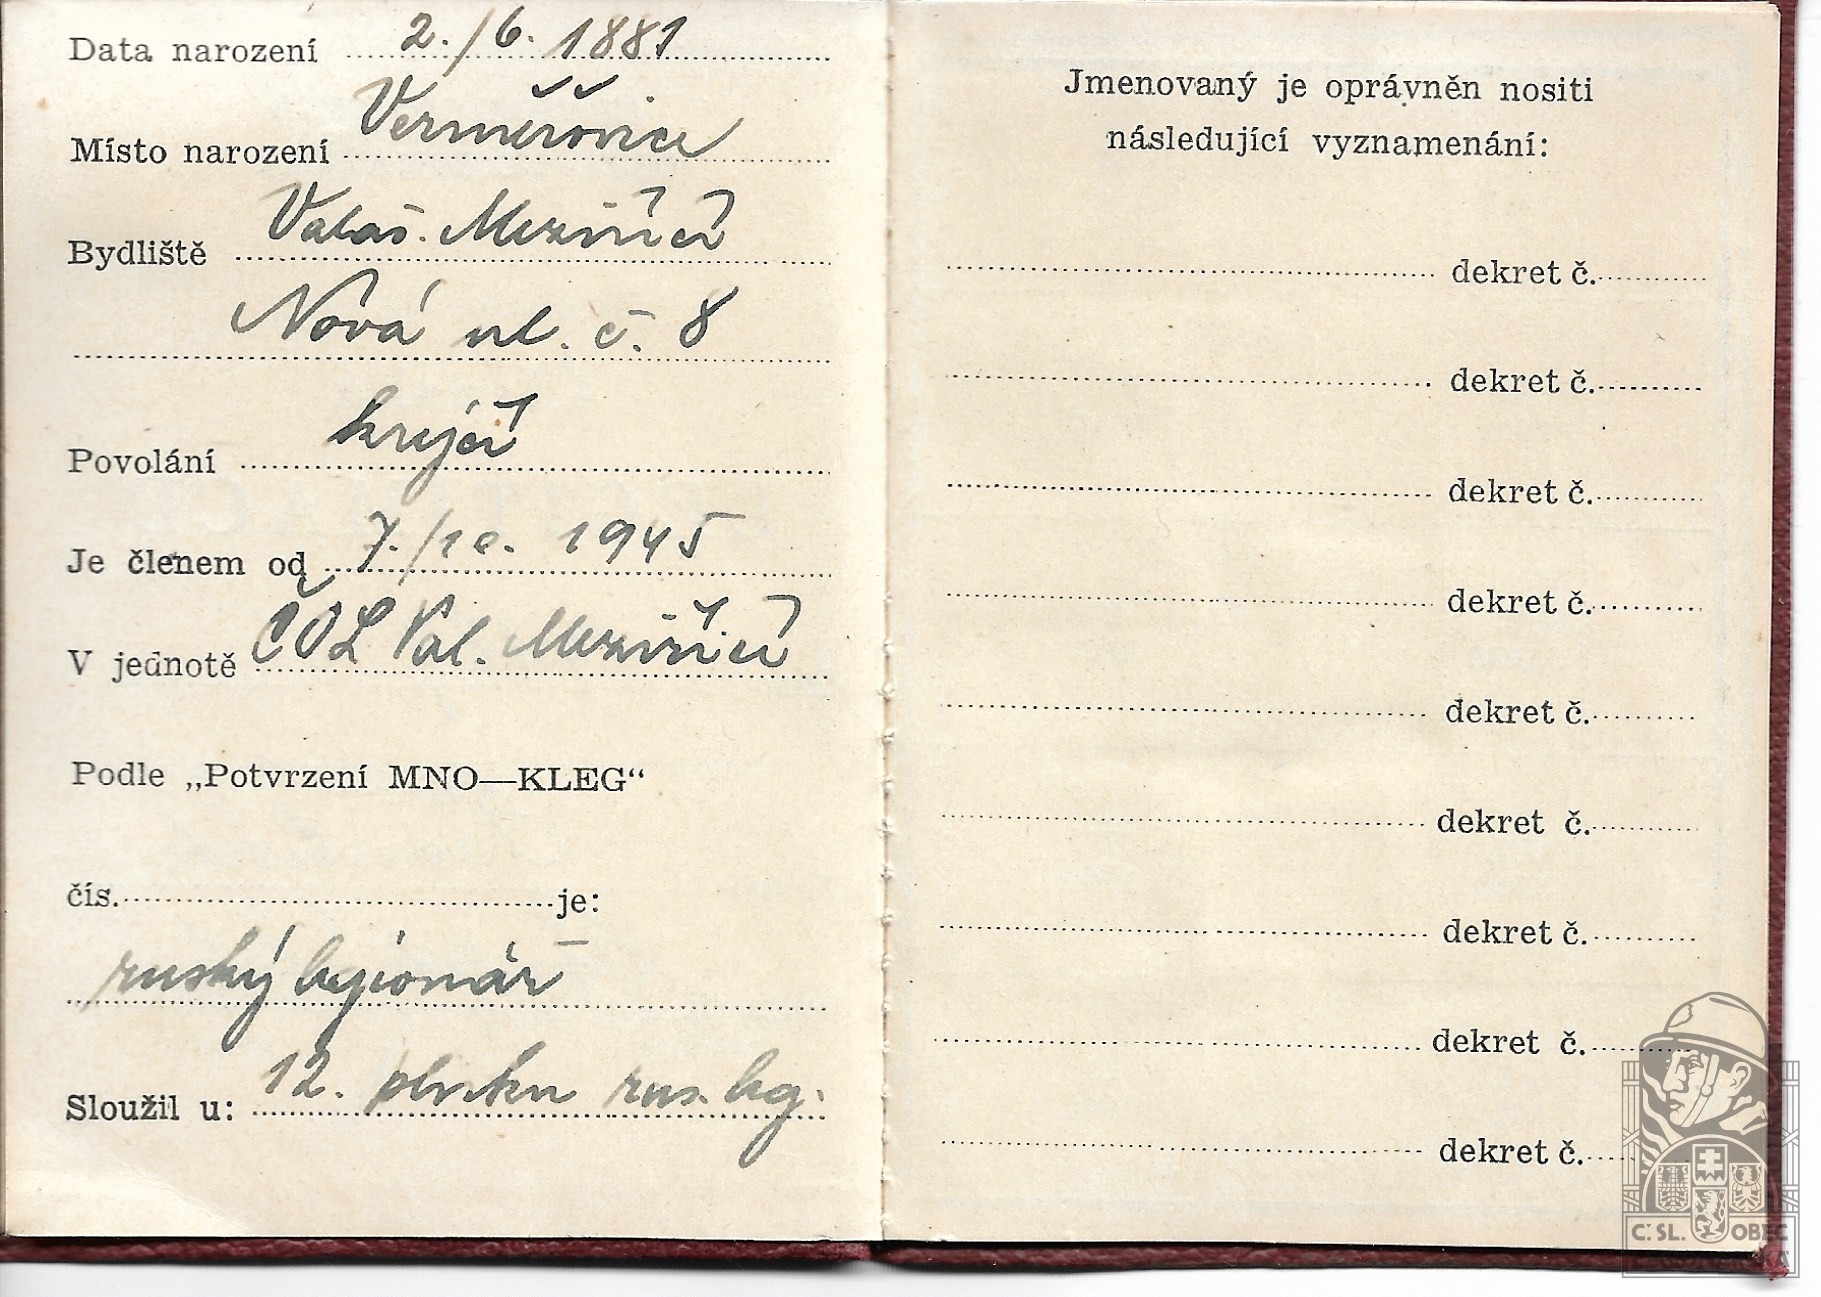 Data narození 2./6. 1881
Místo narození Verměřovice
Bydliště Valaš. Meziříčí
Nová ul. č. 8
Povolání krejčí
Je členem od 7./10. 1945
V jednotě ČOL Val. Meziříčí
Podle „Potvrzení MNO—KLEG“
čís. je:
ruský legionář
Sloužil u: 12. pluku rus. leg.
Jmenovaný je oprávněn nositi
následující vyznamenání:
dekret č.
dekret č.
dekret č.
dekret č.
dekret č.
dekret č.
dekret č.
dekret č.
dekret č.
Č.SL. OBEC